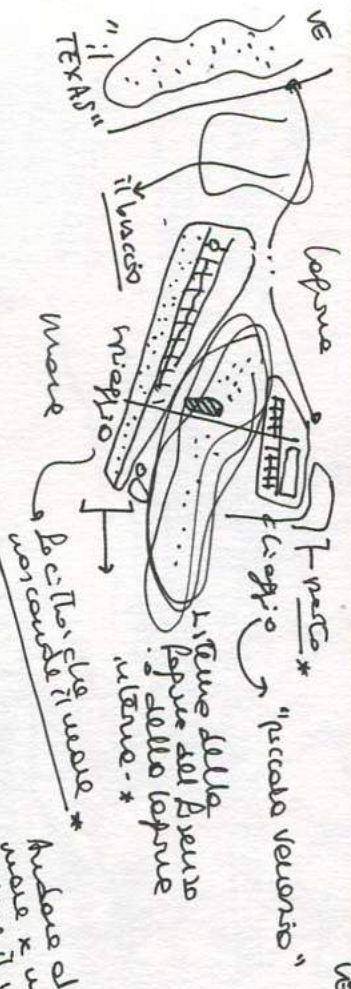 VE
"il
TEXAS"
Laguna
il
mare
porto *
chioggia
"piccola Venezia"
Sistema della
laguna del Lusenzo
o della laguna
interna - *
La città che
nasconde il mare *
VE
Andare al
mare *
il